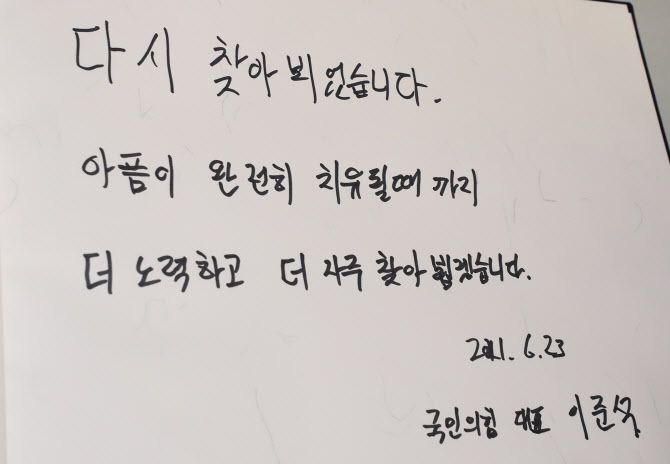 다시 찾아뵈었습니다.
아픔이 완전히 치유될때까지
더 노력하고 더 자주 찾아뵙겠습니다.
2021. 6. 23
국민의힘 대표 이준석